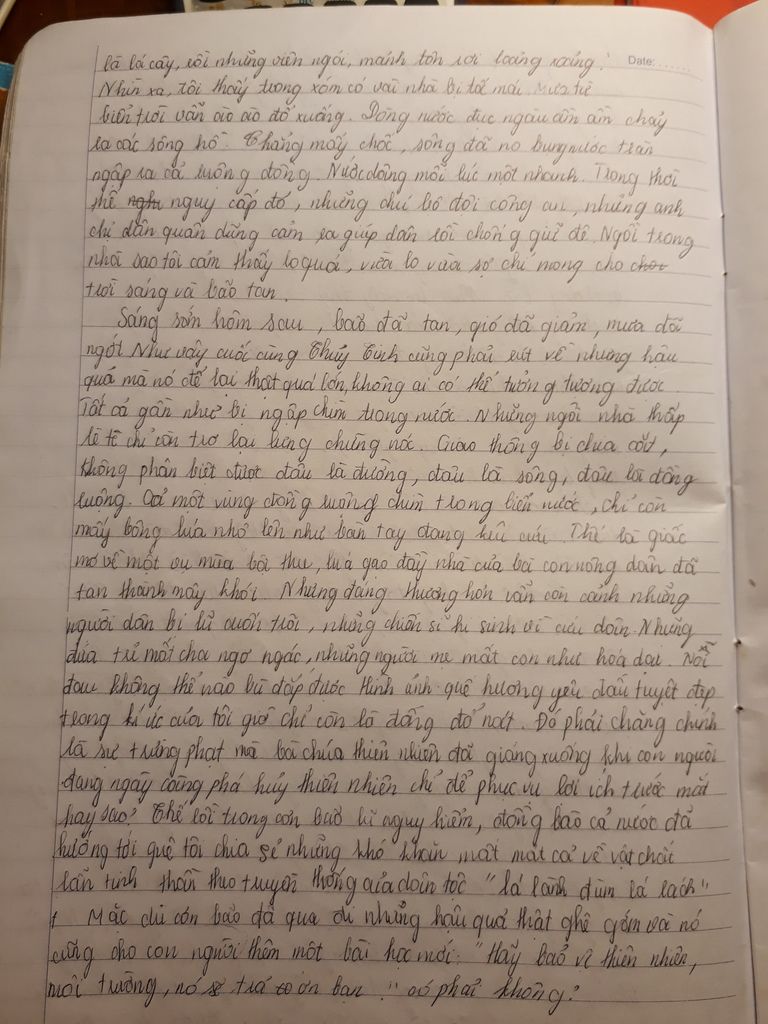 là lá cây, rồi những viên ngói, mảnh tôn rơi loảng xoảng.
Date:.......
Nhìn xa, tôi thấy trong xóm có vài nhà bị tốc mái. Mưa từ
biển trời vẫn ào ào đổ xuống. Dòng nước đục ngầu ầm ầm chảy
ra các sông hồ. Chẳng mấy chốc, sông đã no bụng nước tràn
ngập ra cả ruộng đồng. Nước dâng mỗi lúc một nhanh. Trong thời
thế nguy cấp đó, những chú bộ đội công an, những anh
chị dân quân dũng cảm ra giúp dân rồi chống giữ đê. Ngồi trong
nhà sao tôi cảm thấy lo quá, vừa lo vừa sợ chỉ mong cho
trời sáng và bão tan.
Sáng sớm hôm sau, bão đã tan, gió đã giảm, mưa đã
ngớt. Như vậy cuối cùng Thủy Tinh cũng phải rút về nhưng hậu
quả mà nó để lại thật quá lớn, không ai có thể tưởng tượng được.
Tất cả gần như bị ngập chìm trong nước. Những ngôi nhà thấp
lè tè chỉ còn trơ lại lưng chừng nóc. Giao thông bị chia cắt,
không phân biệt được đâu là đường, đâu là sông, đâu là đồng
ruộng. Cả một vùng đồng ruộng chìm trong biển nước, chỉ còn
mấy bông lúa nhô lên như bàn tay đang kêu cứu. Thế là giấc
mơ về một vụ mùa bội thu, lúa gạo đầy nhà của bà con nông dân đã
tan thành mây khói. Nhưng đáng thương hơn vẫn còn cảnh những
người dân bị lũ cuốn trôi, những chiến sĩ hi sinh vì cứu dân. Những
đứa trẻ mất cha ngơ ngác, những người mẹ mất con như hóa dại. Nỗi
đau không thể nào bù đắp được. Hình ảnh quê hương yêu dấu tuyệt đẹp
trong kí ức của tôi giờ chỉ còn là đống đổ nát. Đó phải chăng chính
là sự trừng phạt mà bà chúa thiên nhiên đã giáng xuống khi con người
đang ngày càng phá hủy thiên nhiên chỉ để phục vụ lợi ích trước mắt
hay sao? Thế rồi trong cơn bão lũ nguy hiểm, đồng bào cả nước đã
hướng tới quê tôi chia sẻ những khó khăn mất mát cả về vật chất
lẫn tinh thần theo truyền thống của dân tộc "lá lành đùm lá rách"
Mặc dù cơn bão đã qua đi nhưng hậu quả thật ghê gớm và nó
cũng cho con người thêm một bài học mới: "Hãy bảo vệ thiên nhiên,
môi trường, nó sẽ trả ơn bạn!" có phải không?